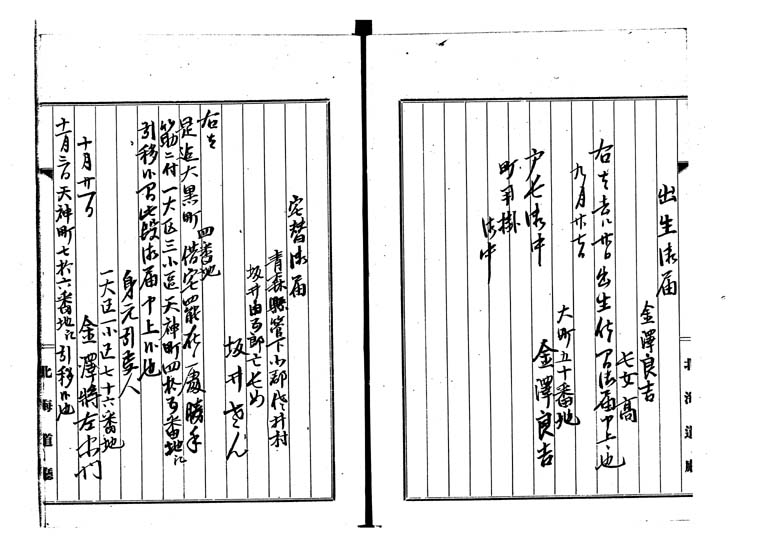 出生御届
金澤良吉
七女高
右者去ル廿日出生仕候間御届申上候也
九月廿七日
大町五十番地
金澤良吉
戸長御中
町用掛
御中
北海道廳
宅替御届
青森縣管下
坂井由五郎亡七女
坂井きん
右者
四番地
是迄大黒町借宅罷在候處勝手
筋ニ付一大区三小区天神町四拾五番地江
引移候間此段御届申上候也
身元引受人
一大区一小区七十六番地
金澤將左衛門
十月廿一日
十一月三日天神町七拾六番地江引移候也
北海道廳